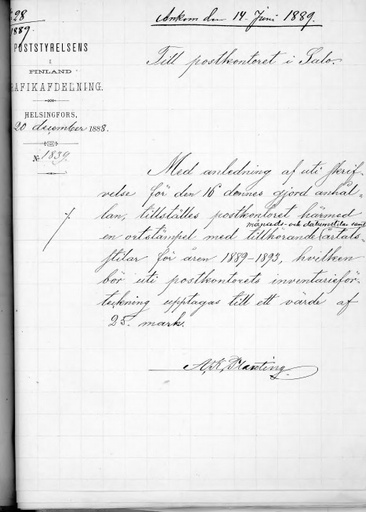 28
1889.
Ankom den 14 Juni 1889.
POSTSTYRELSENS
I
FINLAND
TRAFIKAFDELNING.
HELSINGFORS,
20 december 1888.
No 1839
Till postkontoret i Salo.
Med anledning af uti skrif-
velse för den 16 dennes gjord anhål-
lan, tillställes postkontoret härmed
månads- och datumstilar samt
en ortstämpel med tillhörande årtals-
stilar för åren 1889-1893, hvilken
bör uti postkontorets inventarieför-
teckning upptagas till ett värde af
25. mark.